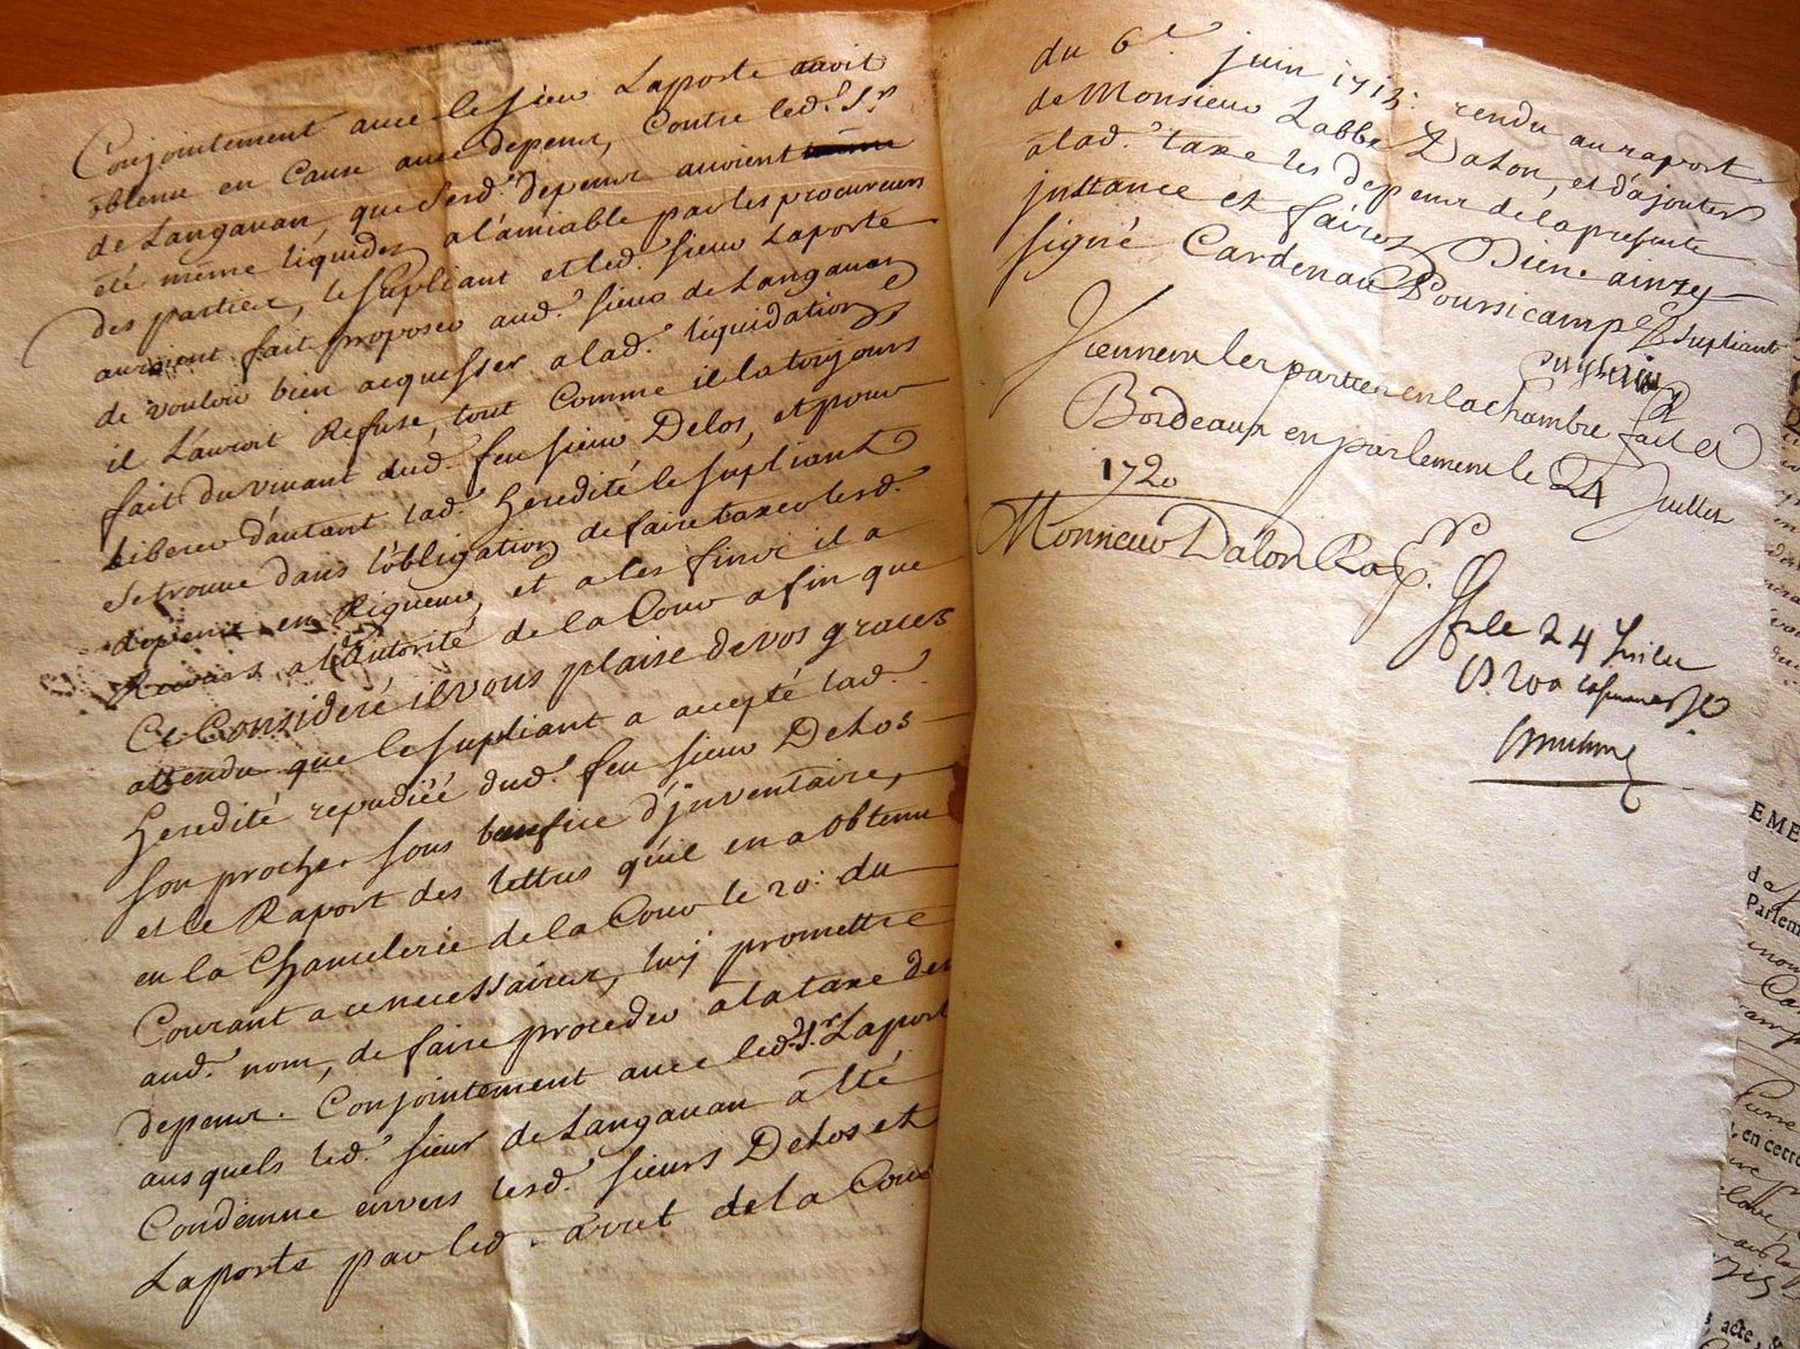 Conjointement avec le sieur Laporte avoit
obtenu en Cause avec depens, Contre led.t S.r
de Langauan, que Lesd.ts depens auoient
été même liquides a l'amiable par les procureurs
des parties, le supliant et led. sieur Laporte
auroient fait proposer aud. sieur de Langauan
de vouloir bien acquesser a lad. liquidation
il L'auroit Refusé, tout Comme il la toujours
fait du vivant dud. feu sieur Delos, et pour
Liberer d'autant lad. heredité le supliant
se trouve dans l'obligation de faire taxer lesd.
depens en Rigueur, et a les finir il a
Recours a l'autorité de la Cour afin que
Ce Consideré il vous plaise de vos graces
attendu que le supliant a accepté lad.
heredité repudiée dud. feu sieur Delos
son proche sous benefice d'jnventaire,
et le Raport des lettres qu'il en a obtenu
en la Chancelerie de la Cour le 20: du
Courant a ce necessaires, luy promettre
aud. nom, de faire proceder a la taxe des
depens. Conjointement avec led. S.r Laport
ausquels led. sieur de Langauan a été
Condemne envers lesd. sieurs Delos et
Laporte par led. arret de la Cour
du 6.e juin 1715: rendu au raport
de Monsieur Labbé Dalon, et d'ajouter
a lad. taxe les depens de la presente
jnstance et faires Bien ainsy
signé Cardenau Poursicamp supliant
Viennent les parties en la chambre fait a
Bordeaux en parlement le 24 Juillet
1720
Monsieur Dalon Rap.r
le 24 Juillet